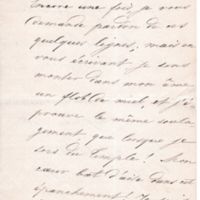 Encore une fois, je vous
demande pardon de ces
quelques lignes, mais en
vous écrivant je sens
monter dans mon âme
un flot de miel, et j'é-
prouve le même soula-
gement que lorsque je
sors du temple! Mon
cœur bat d'aise dans cet
épanchement!